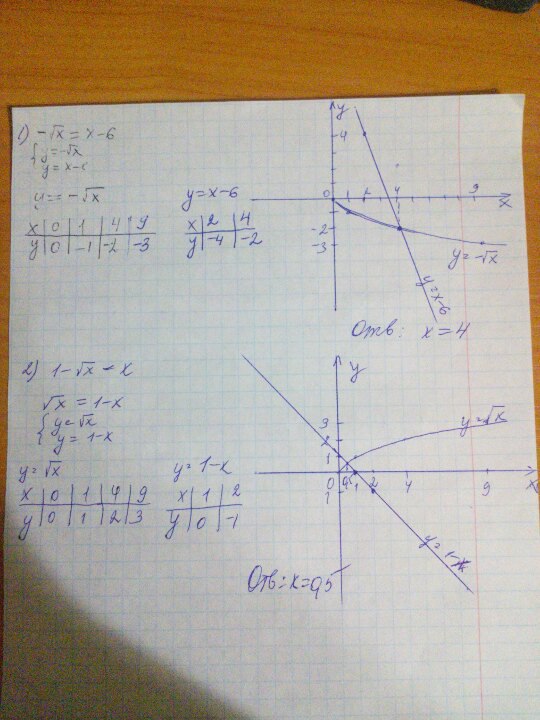 1) -√x = x-6
{ y=-√x
y = x-6
y = -√x
x | 0 | 1 | 4 | 9
y | 0 | -1 | -2 | -3
y=x-6
x | 2 | 4
y | -4 | -2
y
4
0 4 9 x
-2
-3
y=-√x
y=x-6
Отв: x=4
2) 1-√x = x
√x = 1-x
{ y=√x
y = 1-x
y=√x
x | 0 | 1 | 4 | 9
y | 0 | 1 | 2 | 3
y=1-x
x | 1 | 2
y | 0 | -1
y
3
2
1
0 1 2 4 9 x
1
y=√x
y=1-x
Отв: x=0,5